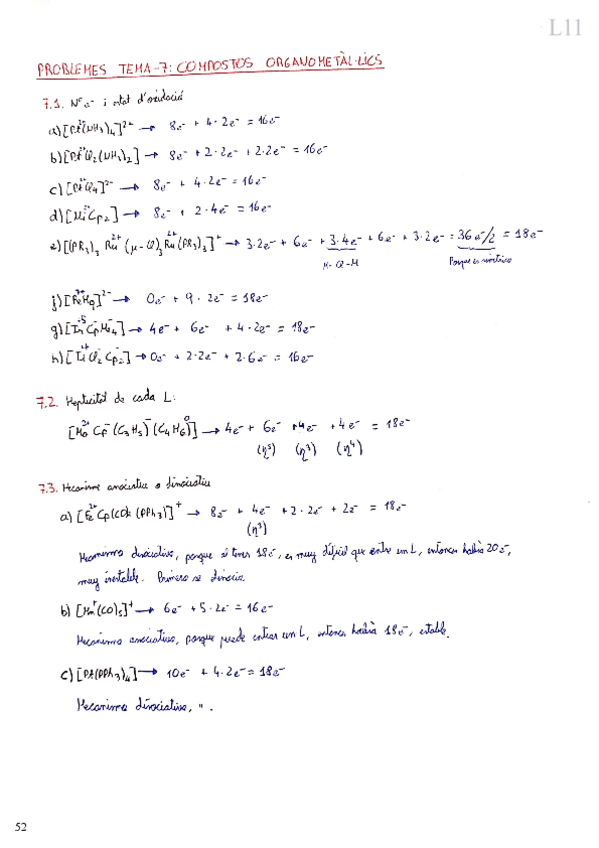 L11
PROBLEMES TEMA-7: COMPOSTOS ORGANOMETÀL·LICS
7.1. Nº e⁻ i estat d'oxidació
a) [Pt²⁺(NH₃)₄]²⁺ → 8e⁻ + 4·2e⁻ = 16e⁻
b) [Pt²⁺Cl₂(NH₃)₂] → 8e⁻ + 2·2e⁻ + 2·2e⁻ = 16e⁻
c) [Pt²⁺Cl₄]²⁻ → 8e⁻ + 4·2e⁻ = 16e⁻
d) [ Cp₂] → 8e⁻ + 2·4e⁻ = 16e⁻
e) [(PR₃)₃ Ru²⁺ (μ-Cl)₃ Ru²⁺(PR₃)₃]⁺ → 3·2e⁻ + 6e⁻ + 3·4e⁻ + 6e⁻ + 3·2e⁻ = 36e⁻/2 = 18e⁻
M-Cl-M Porque es simétrico
j) [ReH₉]²⁻ → 0e⁻ + 9·2e⁻ = 18e⁻
g) [ Cp⁻Me₄] → 4e⁻ + 6e⁻ + 4·2e⁻ = 18e⁻
h) [Ti⁴⁺Cl₂ Cp₂] → 0e⁻ + 2·2e⁻ + 2·6e⁻ = 16e⁻
7.2. Hapticitat de cada L:
[Mo²⁺ Cp⁻ (C₃H₅)⁻ (C₄H₆)⁰] → 4e⁻ + 6e⁻ + 4e⁻ + 4e⁻ = 18e⁻
(η⁵) (η³) (η⁴)
7.3. Mecanisme associatiu o dissociatiu
a) [Fe²⁺Cp(CO)₂(PPh₃)]⁺ → 8e⁻ + 4e⁻ + 2·2e⁻ + 2e⁻ = 18e⁻
(η³)
Mecanismo disociativo, porque si tienes 18e⁻, es muy difícil que entre un L, entonces habría 20e⁻,
muy inestable. Primero se disocia.
b) [Mn⁺(CO)₅]⁺ → 6e⁻ + 5·2e⁻ = 16e⁻
Mecanismo asociativo, porque puede entrar un L, entonces habría 18e⁻, estable.
c) [Pt(PPh₃)₄] → 10e⁻ + 4·2e⁻ = 18e⁻
Mecanismo disociativo, ".
52